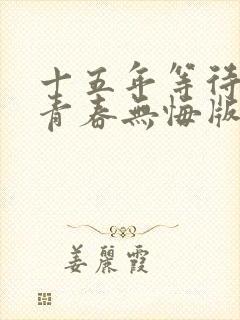 十五年等待
青春無悔版
姜麗霞